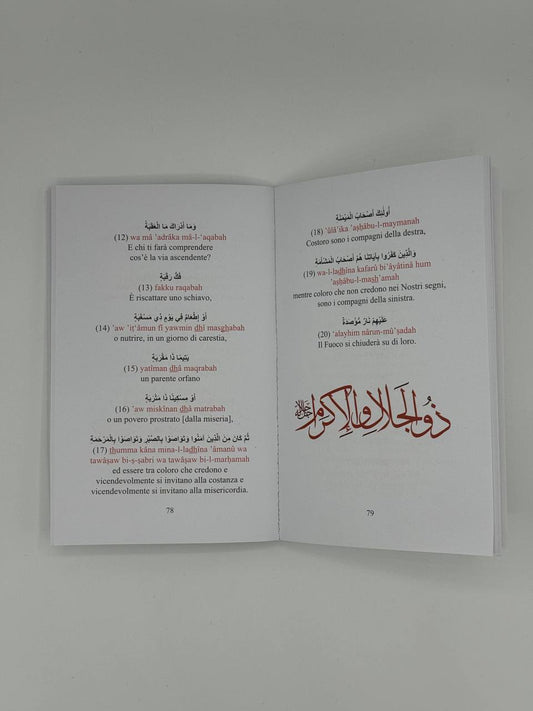 وَمَا أَدْرَاكَ مَا الْعَقَبَةُ
(12) wa mâ ʾadrâka mâ-l-ʿaqabah
E chi ti farà comprendere
cos'è la via ascendente?
فَكُّ رَقَبَةٍ
(13) fakku raqabah
È riscattare uno schiavo,
أَوْ إِطْعَامٌ فِي يَوْمٍ ذِي مَسْغَبَةٍ
(14) ʾaw ʾiṭʿâmun fî yawmin dhî masghabah
o nutrire, in un giorno di carestia,
يَتِيمًا ذَا مَقْرَبَةٍ
(15) yatîman dhâ maqrabah
un parente orfano
أَوْ مِسْكِينًا ذَا مَتْرَبَةٍ
(16) ʾaw miskînan dhâ matrabah
o un povero prostrato [dalla miseria],
ثُمَّ كَانَ مِنَ الَّذِينَ آمَنُوا وَتَوَاصَوْا بِالصَّبْرِ وَتَوَاصَوْا بِالْمَرْحَمَةِ
(17) thumma kâna mina-l-ladhîna ʾâmanû wa
tawâṣaw bi-ṣ-ṣabri wa tawâṣaw bi-l-marḥamah
ed essere tra coloro che credono e
vicendevolmente si invitano alla costanza e
vicendevolmente si invitano alla misericordia.
78
أُولَئِكَ أَصْحَابُ الْمَيْمَنَةِ
(18) ʾûlâʾika ʾaṣḥâbu-l-maymanah
Costoro sono i compagni della destra,
وَالَّذِينَ كَفَرُوا بِآيَاتِنَا هُمْ أَصْحَابُ الْمَشْأَمَةِ
(19) wa-l-ladhîna kafarû biʾâyâtinâ hum
ʾaṣḥâbu-l-mashʾamah
mentre coloro che non credono nei Nostri segni,
sono i compagni della sinistra.
عَلَيْهِمْ نَارٌ مُؤْصَدَةٌ
(20) ʿalayhim nârun-mûʾṣadah
Il Fuoco si chiuderà su di loro.
ذو الجلال والإكرام جل جلاله
79